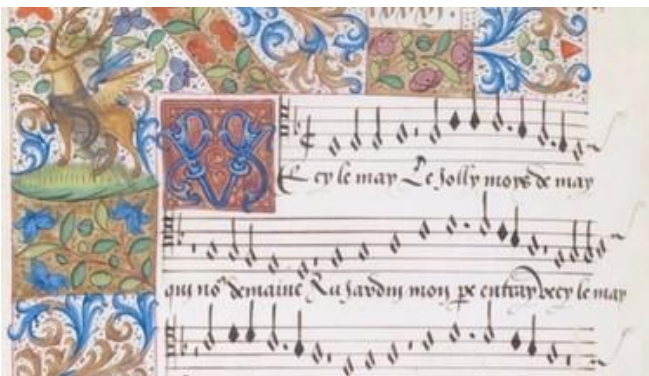 Vecy le may Le Jolly moys de may
qui no⁹ demaine Au Jardin mon pe entray vecy le may